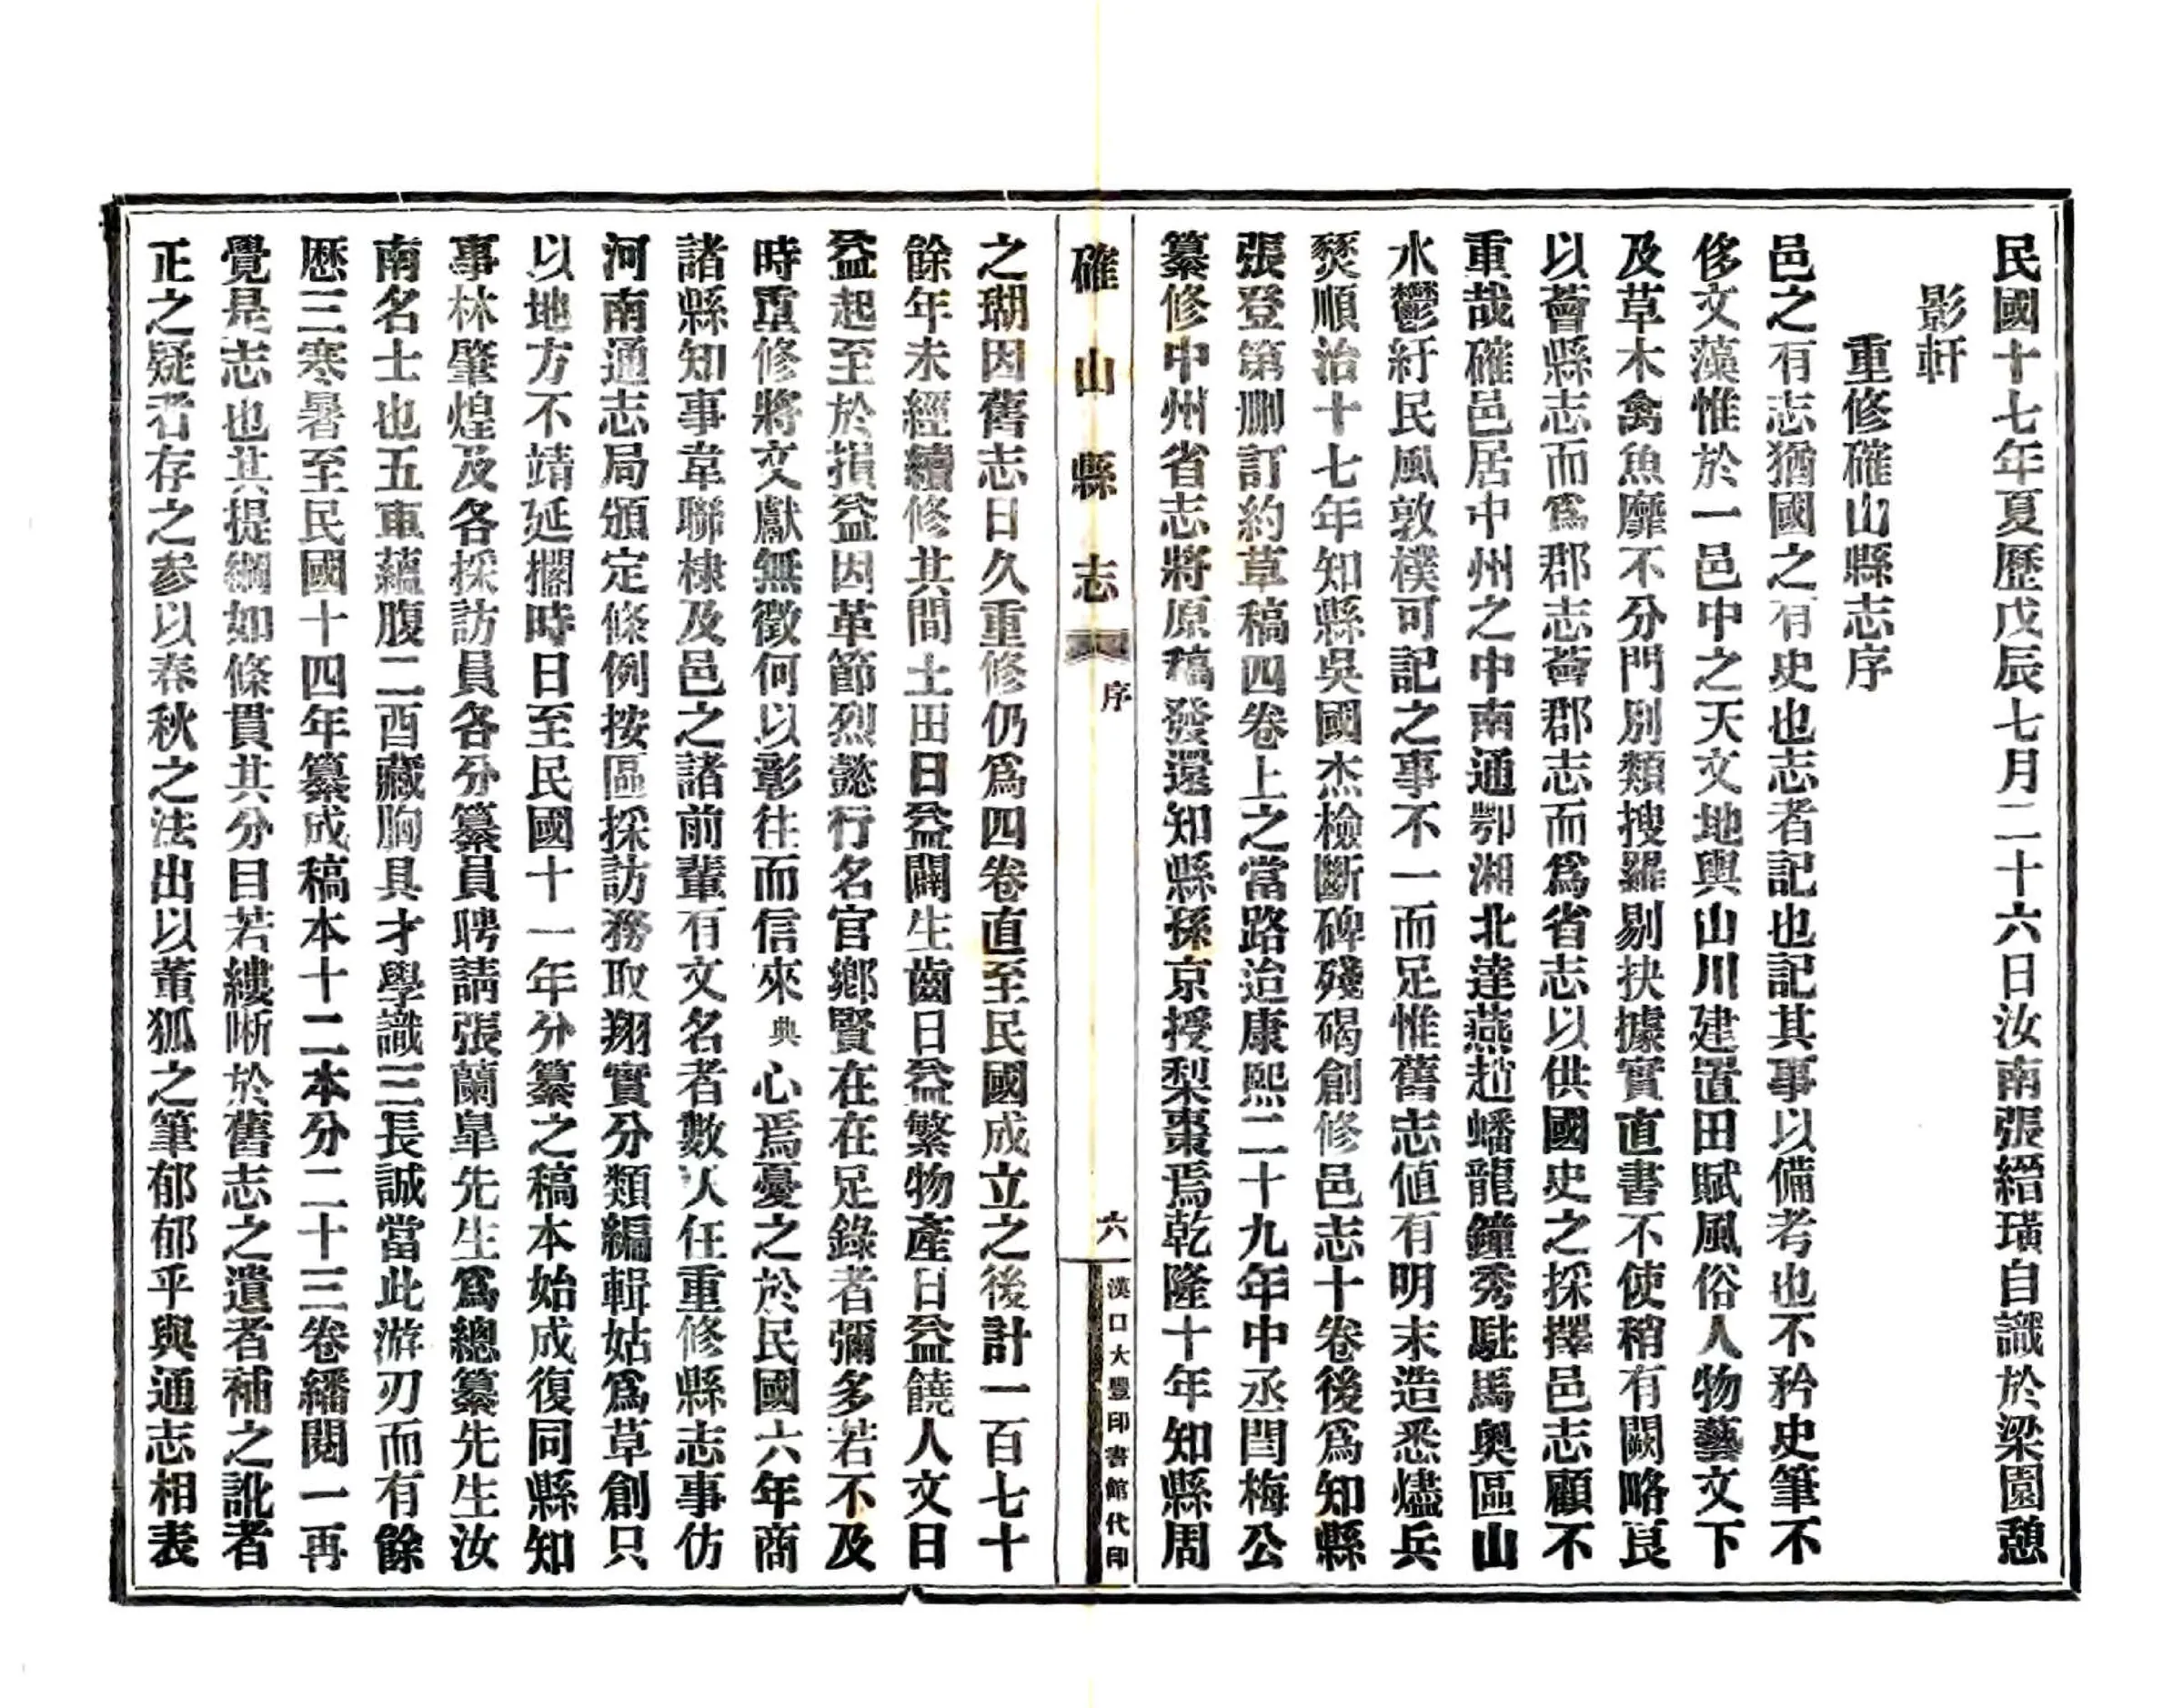 民國十七年夏歷戊辰七月二十六日汝南張縉璜自識於梁園憩
影軒
重修確山縣志序
邑之有志猶國之有史也志者記也記其事以備考也不矜史筆不
侈文藻惟於一邑中之天文地輿山川建置田賦風俗人物藝文下
及草木禽魚靡不分門別類搜羅剔抉據實直書不使稍有闕略良
以薈縣志而爲郡志薈郡志而爲省志以供國史之採擇邑志顧不
重哉確邑居中州之中南通鄂湘北達燕趙蟠龍鐘秀駐馬奧區山
水鬱紆民風敦樸可記之事不一而足惟舊志値有明末造悉燼兵
燹順治十七年知縣吳國杰檢斷碑殘碣創修邑志十卷後爲知縣
張登第删訂約草稿四卷上之當路迨康熙二十九年中丞閆梅公
纂修中州省志將原稿發還知縣孫京授梨棗焉乾隆十年知縣周
確山縣志
序
六
漢口大豐印書館代印
之瑚因舊志日久重修仍爲四卷直至民國成立之後計一百七十
餘年未經續修其間土田日益闢生齒日益繁物產日益饒人文日
益起至於損益因革節烈懿行名官鄉賢在在足錄者彌多若不及
時重修將文獻無徵何以彰往而信來典心焉憂之於民國六年商
諸縣知事韋聯棣及邑之諸前輩有文名者數人任重修縣志事仿
河南通志局頒定條例按區採訪務取翔實分類編輯姑爲草創只
以地方不靖延擱時日至民國十一年分纂之稿本始成復同縣知
事林肇煌及各採訪員各分纂員聘請張蘭臯先生爲總纂先生汝
南名士也五車蘊腹二酉藏胸具才學識三長誠當此游刃而有餘
歷三寒暑至民國十四年纂成稿本十二本分二十三卷繙閱一再
覺是志也其提綱如條貫其分目若縷晰於舊志之遺者補之訛者
正之疑者存之參以春秋之法出以董狐之筆郁郁乎與通志相表